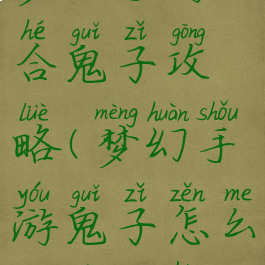 hé guǐ zǐ gōng
合鬼子攻
lüè mèng huàn shǒu
略(梦幻手
yóu guǐ zǐ zěn me
游鬼子怎么